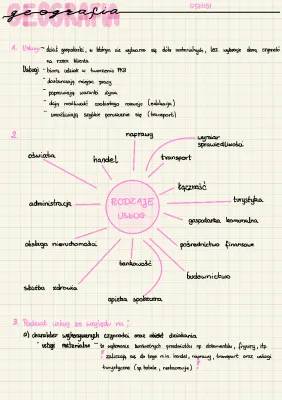 GEOGRAFIA
geografia
usługi
1. Usługi - dział gospodarki, w którym nie wytwarza się dóbr materialnych, lecz wykonuje daną czynność
na rzecz klienta
Usługi - biorą udział w tworzeniu PKB
- dostarczają miejsc pracy
- poprawiają warunki życia
- dają możliwość osobistego rozwoju (edukacja)
- umożliwiają szybkie poruszanie się (transport)
2.
naprawy
wymiar
sprawiedliwości
oświata
handel
transport
łączność
turystyka
administracja
RODZAJE
USŁUG
gospodarka komunalna
obsługa nieruchomości
pośrednictwo finansowe
bankowość
budownictwo
służba zdrowia
opieka społeczna
3. Podział usług ze względu na:
a) charakter wykonywanych czynności oraz obiekt działania
- usługi materialne - to wykonanie konkretnych przedmiotów np dokumentów, figury, itp.
! zaliczają się do tego m.in. handel, naprawy, transport oraz usługi
turystyczne (np. hotele, restauracje) !